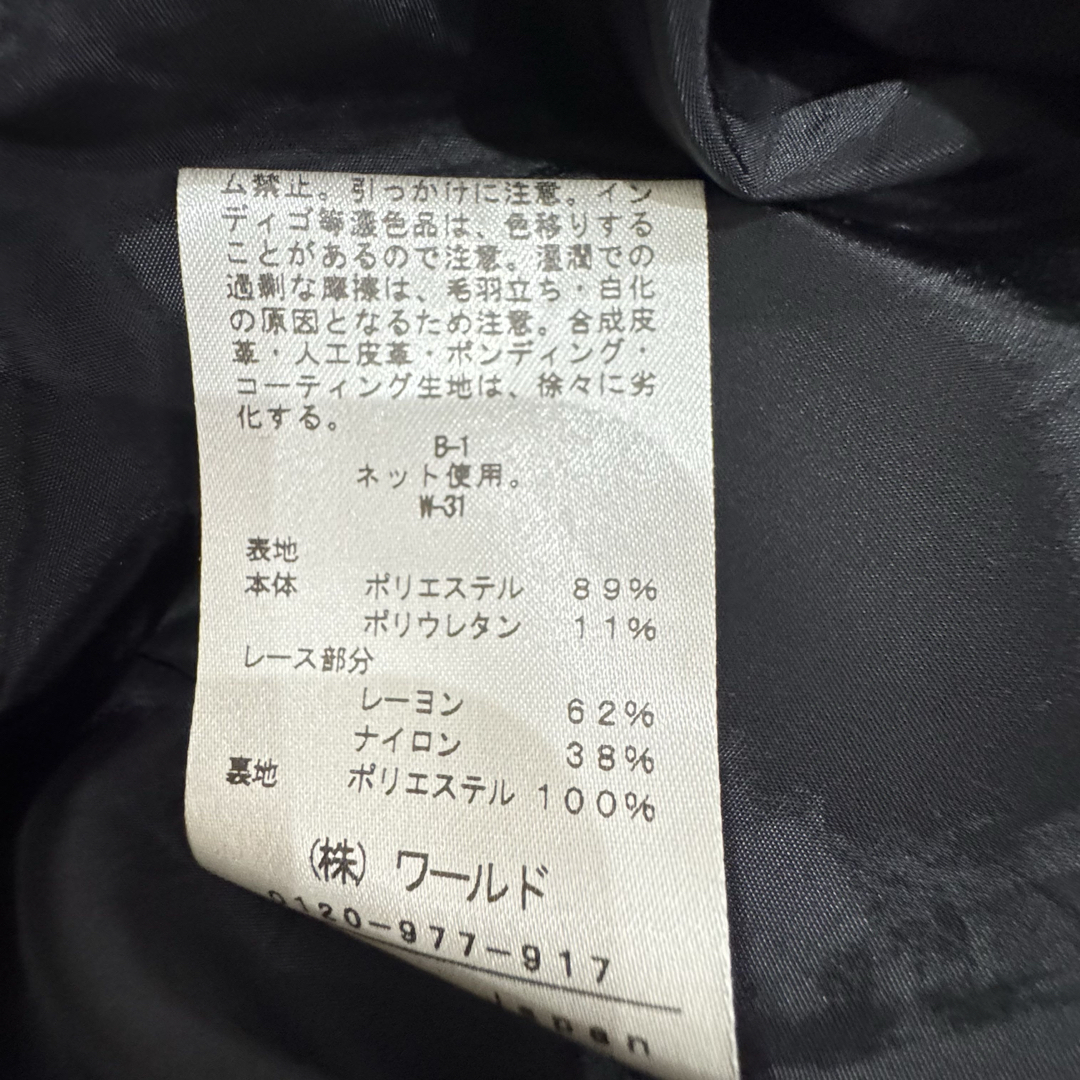 ム禁止。引っかけに注意。イン
ディゴ等濃色品は、色移りする
ことがあるので注意。湿潤での
過剰な摩擦は、毛羽立ち・白化
の原因となるため注意。合成皮
革・人工皮革・ボンディング・
コーティング生地は、徐々に劣
化する。
B-1
ネット使用。
W-31
表地
本体 ポリエステル 89%
ポリウレタン 11%
レース部分
レーヨン 62%
ナイロン 38%
裏地 ポリエステル 100%
(株) ワールド
0120-977-917
Japan